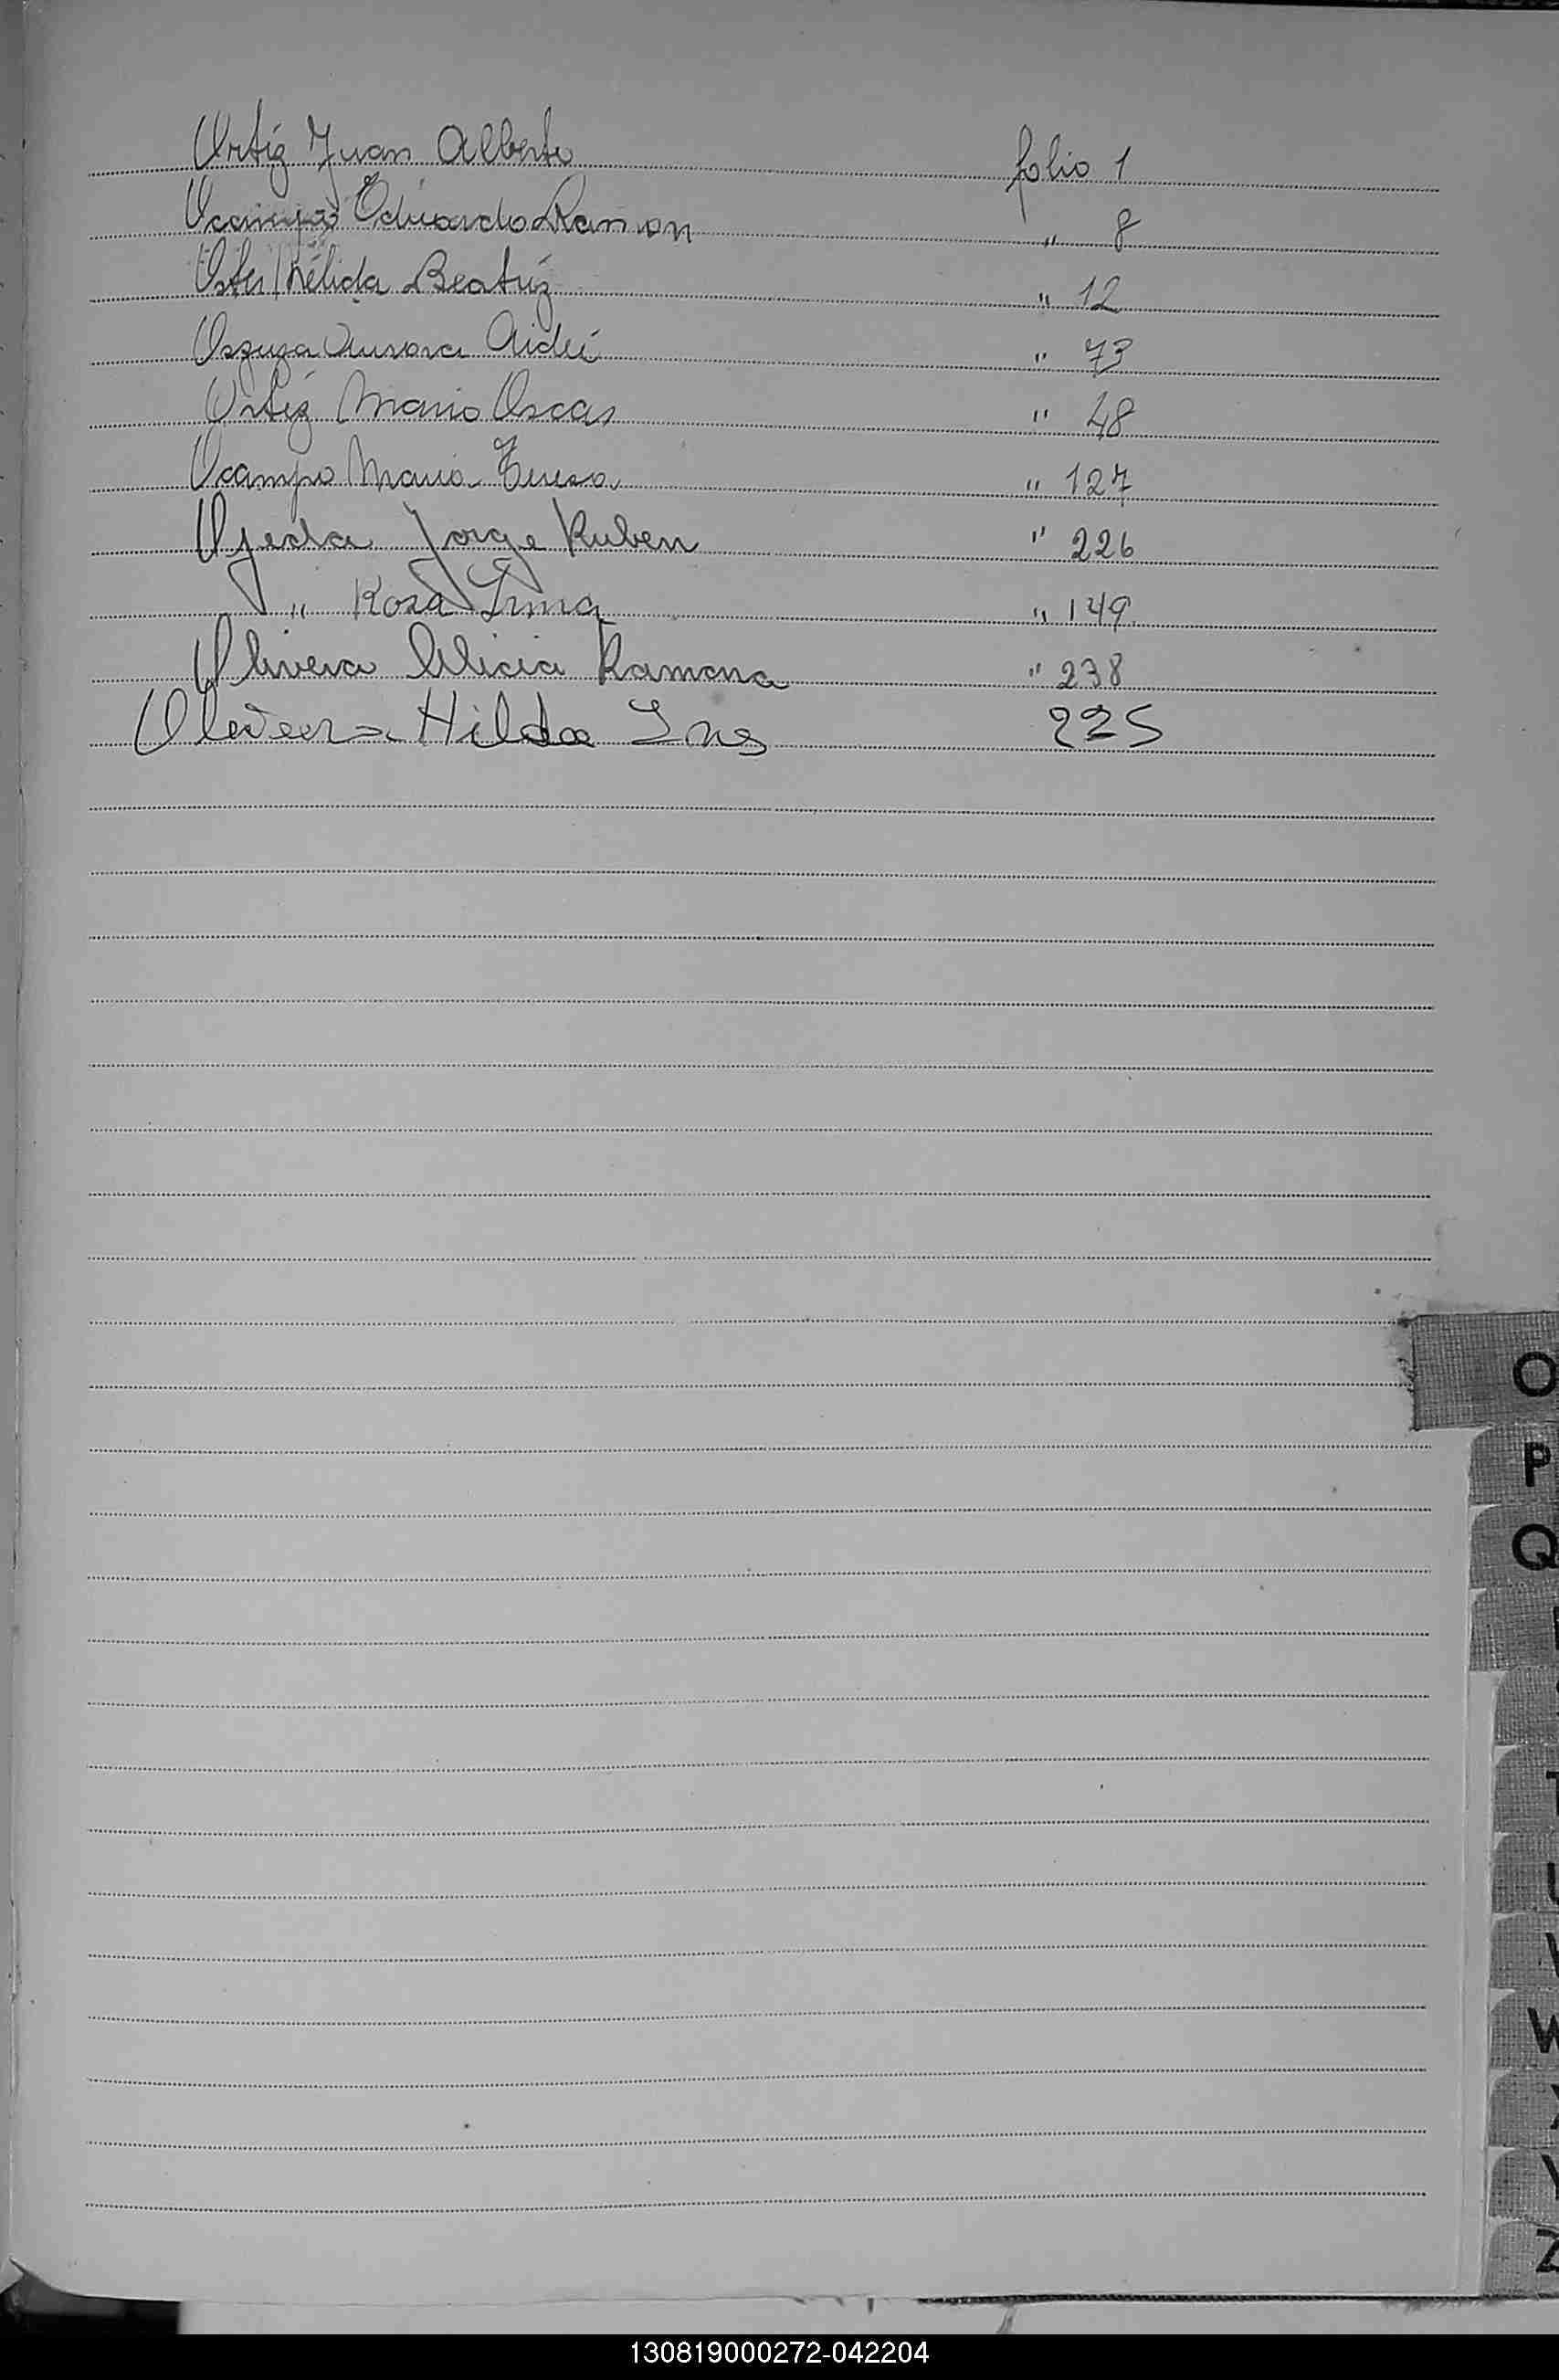 Ortiz Juan Alberto folio 1
Ocampo Eduardo Ramon " 8
Nélida Beatriz " 12
Aurora Aideé " 73
Ortiz Mario Oscar " 48
Ocampo Maria Teresa " 127
Ojeda Jorge Ruben " 226
" Rosa Irma " 149
Olivera Alicia Ramona " 238
Oliveera Hilda Ines 225
O
P
Q
T
U
V
W
X
Y
Z
130819000272-042204